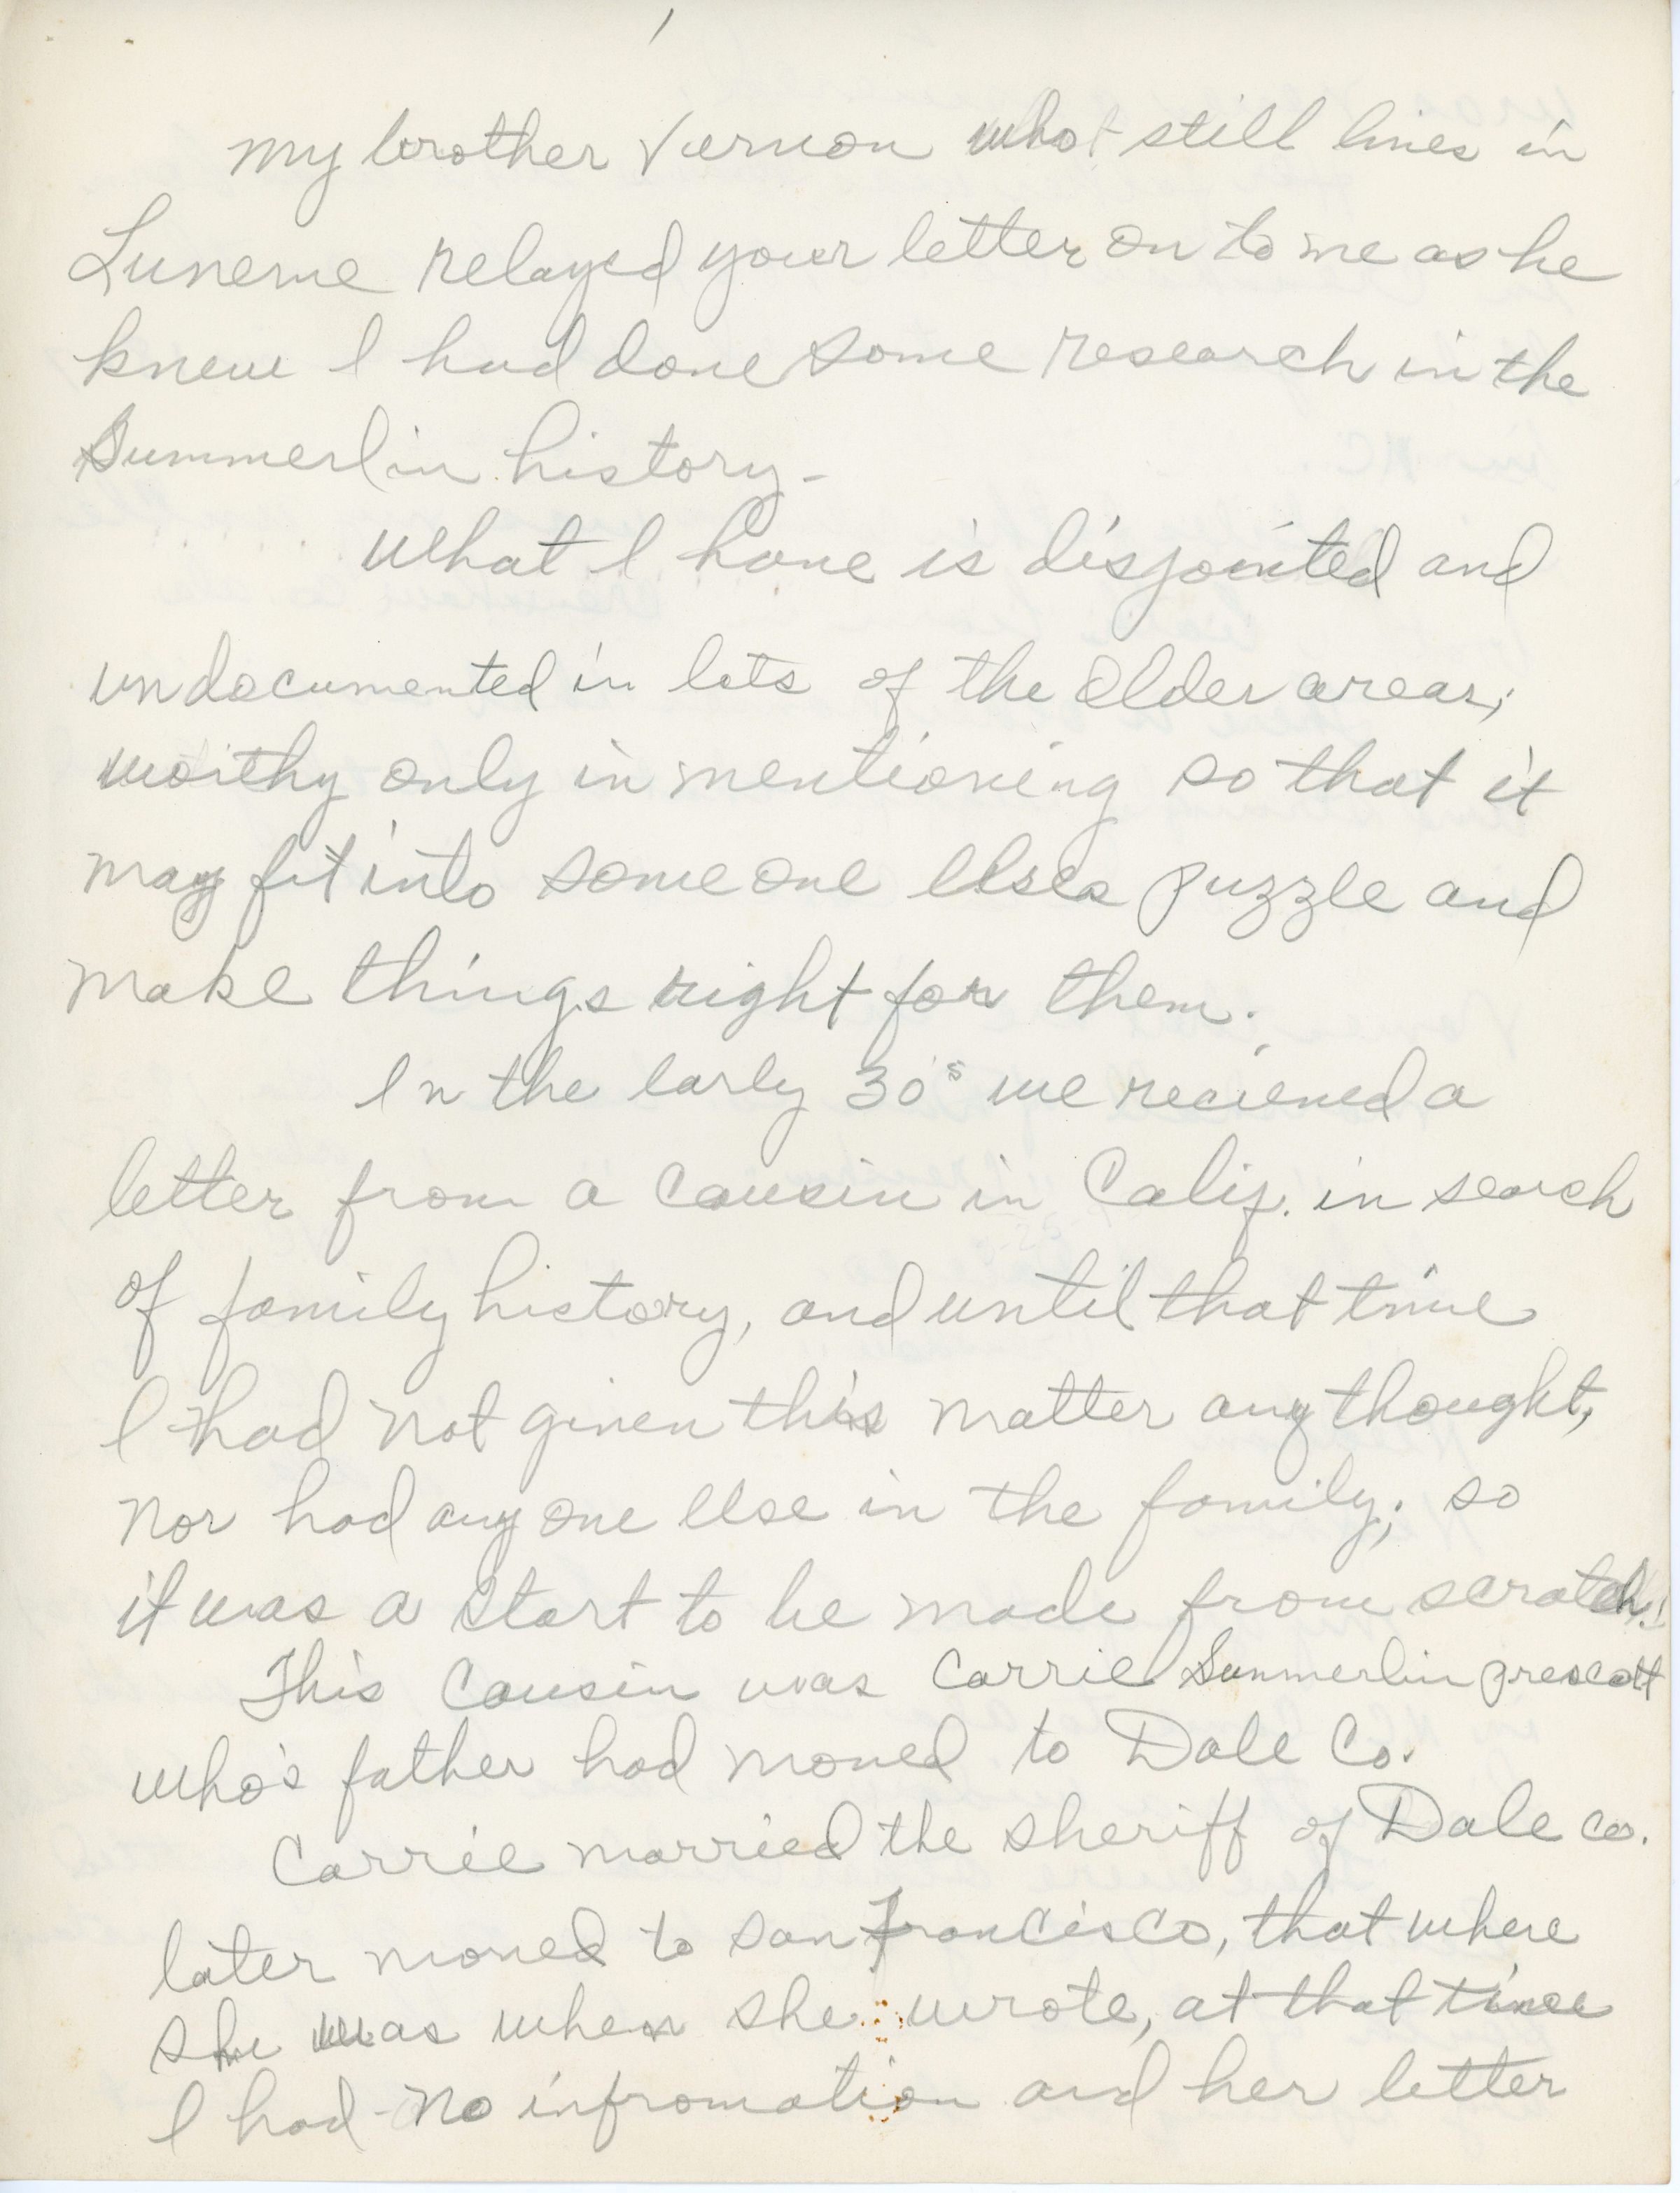 /
my brother Vernon who still lives in
Luverne relayed your letter on to me as he
knew I had done some research in the
Summerlin history -
What I have is disjointed and
undocumented in lots of the older areas;
worthy only in mentioning so that it
may fit into someone elses puzzle and
make things right for them.
In the early 30s we recieved a
letter from a cousin in Calif. in search
of family history, and until that time
I had not given this matter any thought,
nor had any one else in the family; so
it was a start to be made from scratch!
This cousin was Carrie Summerlin Prescott
who's father had moved to Dale Co.
Carrie married the sheriff of Dale co.
later moved to San Francisco, that where
she was when she wrote, at that time
I had no infromation and her letter